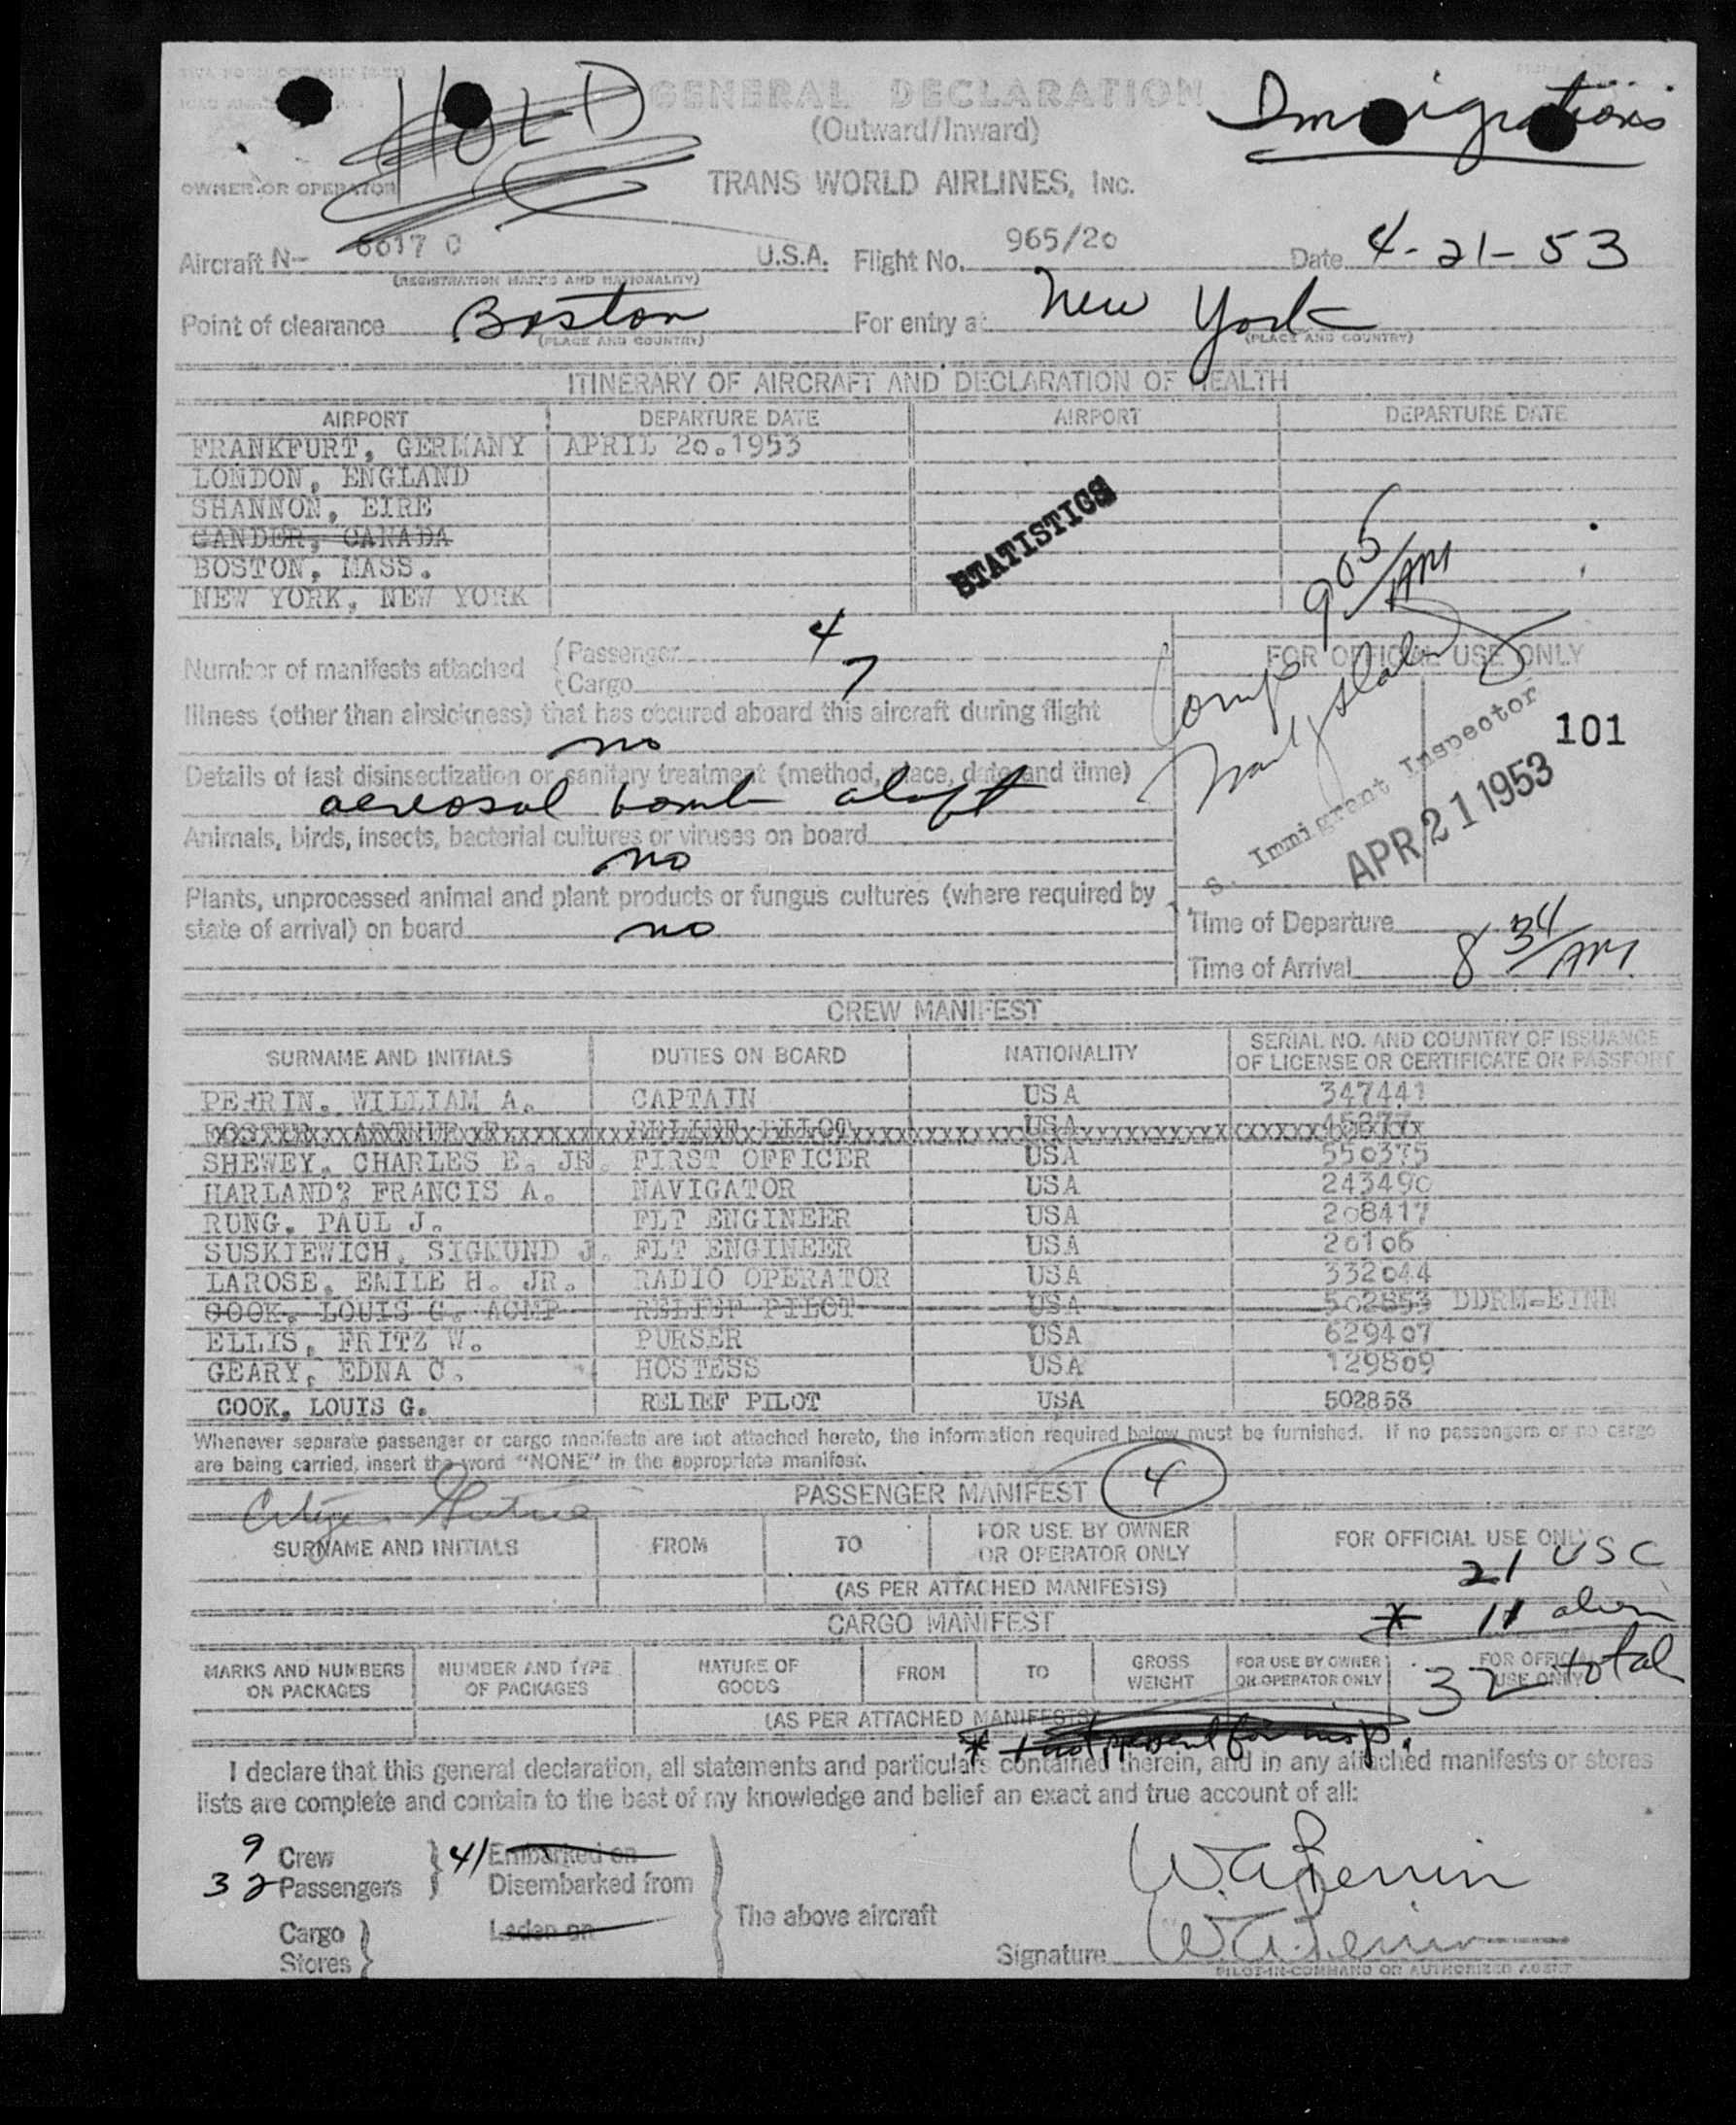 HOLD
GENERAL DECLARATION
(Outward/Inward)
Immigrations
OWNER OR OPERATOR
TRANS WORLD AIRLINES, INC.
Aircraft N- 6017 C U.S.A. Flight No. 965/20 Date 4-21-53
(REGISTRATION MARKS AND NATIONALITY)
Point of clearance Boston For entry at New York
(PLACE AND COUNTRY) (PLACE AND COUNTRY)
ITINERARY OF AIRCRAFT AND DECLARATION OF HEALTH
AIRPORT DEPARTURE DATE AIRPORT DEPARTURE DATE
FRANKFURT, GERMANY APRIL 20.1953
LONDON, ENGLAND
SHANNON, EIRE
GANDER, CANADA
BOSTON, MASS.
NEW YORK, NEW YORK
STATISTICS
905/AM
Number of manifests attached (Passenger 4
(Cargo 7
FOR OFFICIAL USE ONLY
Comp
Illness (other than airsickness) that has occured aboard this aircraft during flight
no
Details of last disinsectization or sanitary treatment (method, place, date and time)
aerosol bomb aloft
Animals, birds, insects, bacterial cultures or viruses on board
no
Plants, unprocessed animal and plant products or fungus cultures (where required by
state of arrival) on board no
S. Immigrant Inspector 101
APR 21 1953
Time of Departure
Time of Arrival 8 34/AM
CREW MANIFEST
SURNAME AND INITIALS DUTIES ON BOARD NATIONALITY SERIAL NO. AND COUNTRY OF ISSUANCE
OF LICENSE OR CERTIFICATE OR PASSPORT
PERRIN. WILLIAM A. CAPTAIN USA 347441
SHEWEY, CHARLES E. JR. FIRST OFFICER USA 550375
HARLAND? FRANCIS A. NAVIGATOR USA 243490
RUNG. PAUL J. FLT ENGINEER USA 208417
SUSKIEWICH, SIGMUND J. FLT ENGINEER USA 20106
LAROSE, EMILE H. JR. RADIO OPERATOR USA 332044
COOK. LOUIS G. ACMP RELIEF PILOT USA 502853 DDRM-EINN
ELLIS, FRITZ W. PURSER USA 629407
GEARY, EDNA C. HOSTESS USA 129809
COOK, LOUIS G. RELIEF PILOT USA 502853
Whenever separate passenger or cargo manifests are not attached hereto, the information required below must be furnished. If no passengers or no cargo
are being carried, insert the word "NONE" in the appropriate manifest.
PASSENGER MANIFEST 4
SURNAME AND INITIALS FROM TO FOR USE BY OWNER
OR OPERATOR ONLY FOR OFFICIAL USE ONLY
21 USC
(AS PER ATTACHED MANIFESTS)
CARGO MANIFEST
* 11 alien
32 total
MARKS AND NUMBERS
ON PACKAGES NUMBER AND TYPE
OF PACKAGES NATURE OF
GOODS FROM TO GROSS
WEIGHT FOR USE BY OWNER
OR OPERATOR ONLY FOR OFFICIAL
USE ONLY
(AS PER ATTACHED MANIFESTS)
* 1 not present for insp.
I declare that this general declaration, all statements and particulars contained therein, and in any attached manifests or stores
lists are complete and contain to the best of my knowledge and belief an exact and true account of all:
9 Crew
32 Passengers
41 Embarked on
Disembarked from
Cargo
Stores
Laden on
The above aircraft
W.A. Perrin
Signature W.A. Perrin
PILOT-IN-COMMAND OR AUTHORIZED AGENT